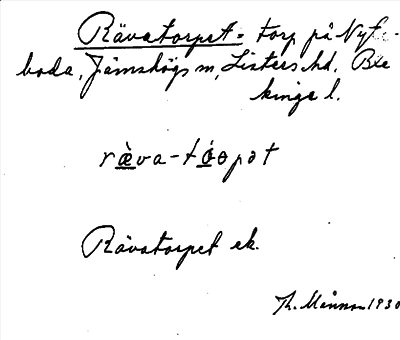 Rävatorpet = torp på Nyte-
boda, Jämshögs sn, Listers hd, Ble
kinge l.
ræ̀va-tóopət
Rävatorpet ek.
Th. Månsson 1930